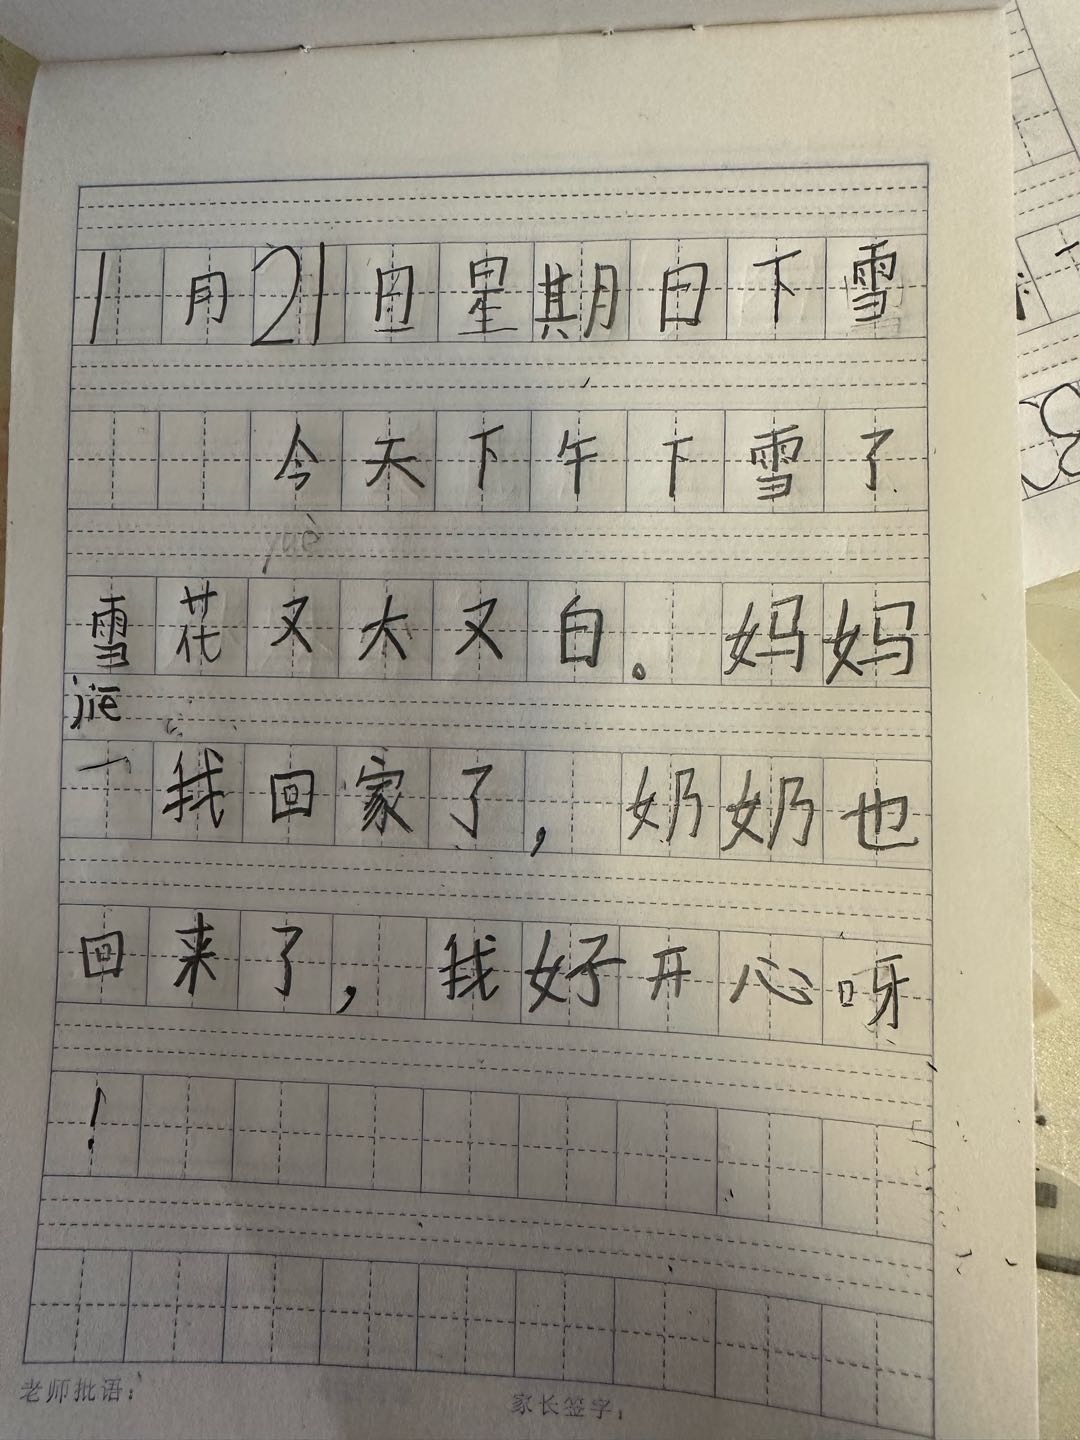 1月21日星期日下雪
今天下午下雪了
yuè
雪花又大又白。妈妈
jiē
一我回家了，奶奶也
回来了，我好开心呀
！
老师批语：
家长签字：